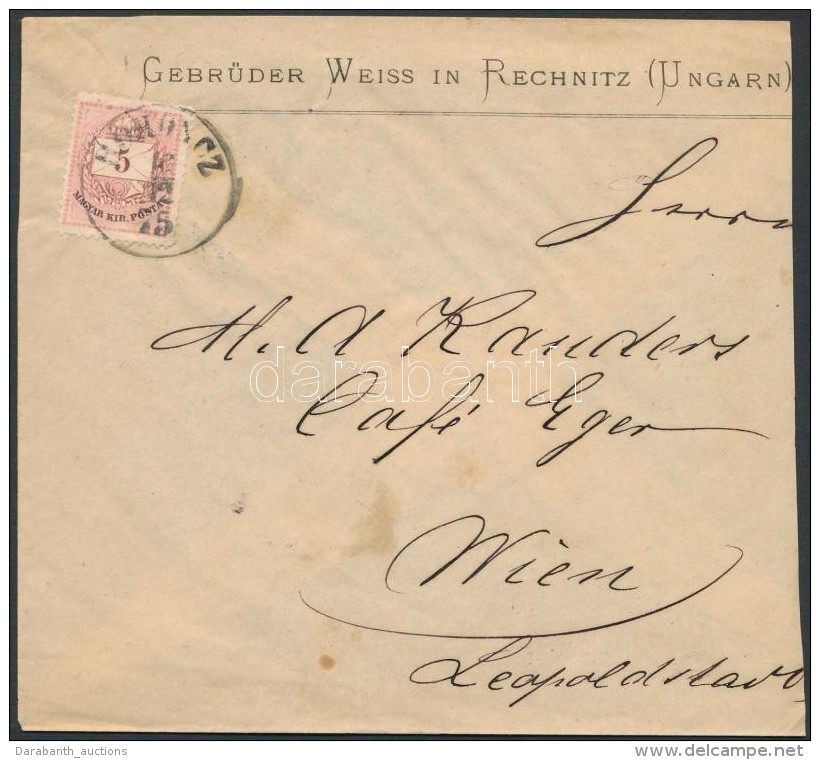 GEBRÜDER WEISS IN RECHNITZ (UNGARN)
5
MAGYAR KIR. POSTA
Herrn
M. A Kanders
Café Eger
Wien
Leopoldstadt
darabanth
Darabanth_auctions
www.delcampe.net